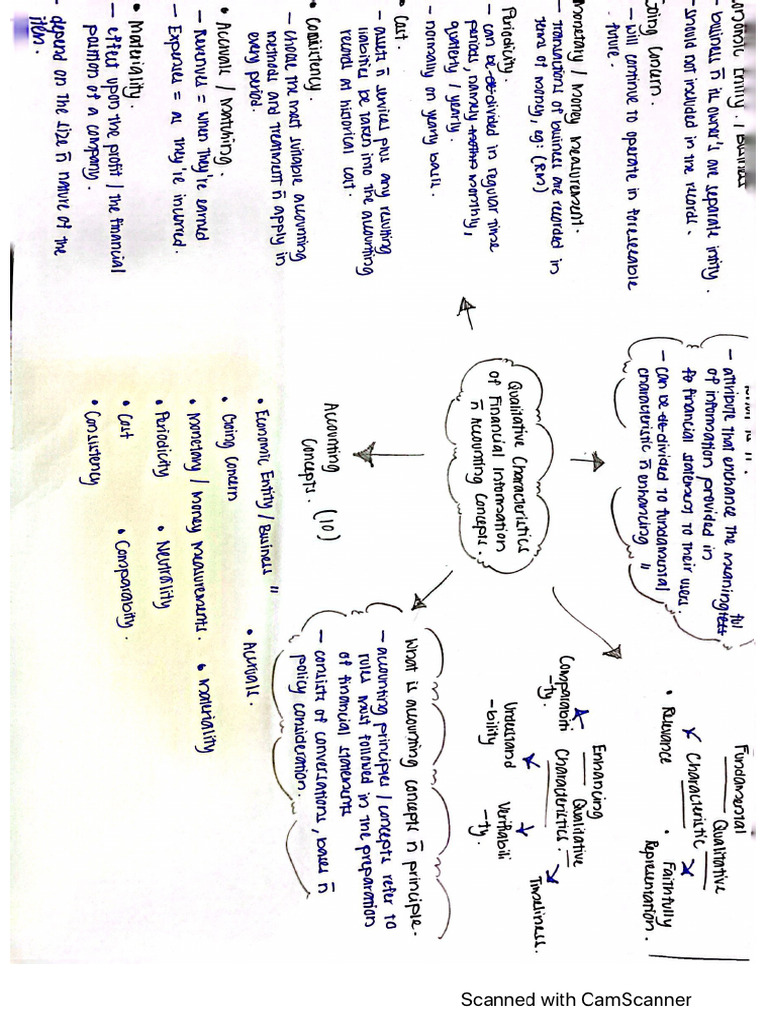 Qualitative Characteristics
of Financial Information
n̄ Accounting Concepts.
- attribute that enchance the meaningful
of information provided in
to financial statements to their users.
- can be divided to fundamental
characteristic n̄ enhancing "
Fundamental
Qualitative
Characteristic
• Relevance
• Faithfully
Representation.
Enhancing
Qualitative
Characteristics.
Comparabiti
-ty.
Understand
-bility
Verifiabili
-ty.
Timeliness.
What is accounting concepts n̄ principle.
- accounting principles / concepts refer to
rules must followed in the preparation
of financial statements
- consists of conversations, bases n̄
policy consideration.
Accounting
Concepts. (10)
• Economic Entity / Business "
• Going Concern
• Monetary / Money Measurements.
• Periodicity
• Cost
• Consistency
• Accruals.
• Materiality
• Neutrality
• Comparability.
Economic Entity. / Business
- business n̄ its owner's are separate intity.
- should not included in the records.
Going Concern.
- will continue to operate in foreseeable
future.
Monetary / Money Measurement.
- transactions of business are recorded in
terms of money, eg: (RM)
Periodicity.
- can be divided in regular time
periods, namely monthly,
quaterly / yearly.
- normally on yearly basis.
• Cost.
- assets n̄ services plus any resulting
liabilities be taken into the accounting
records at historical cost.
• Consistency.
- choose the most suitable accounting
methods and treatment n̄ apply in
every period.
• Accruals / Matching.
- Revenues = when they're earned
- Expenses = as they're incurred.
• Materiality.
- effect upon the profit / the financial
position of a company.
- depend on the size n̄ nature of the
item.
Scanned with CamScanner